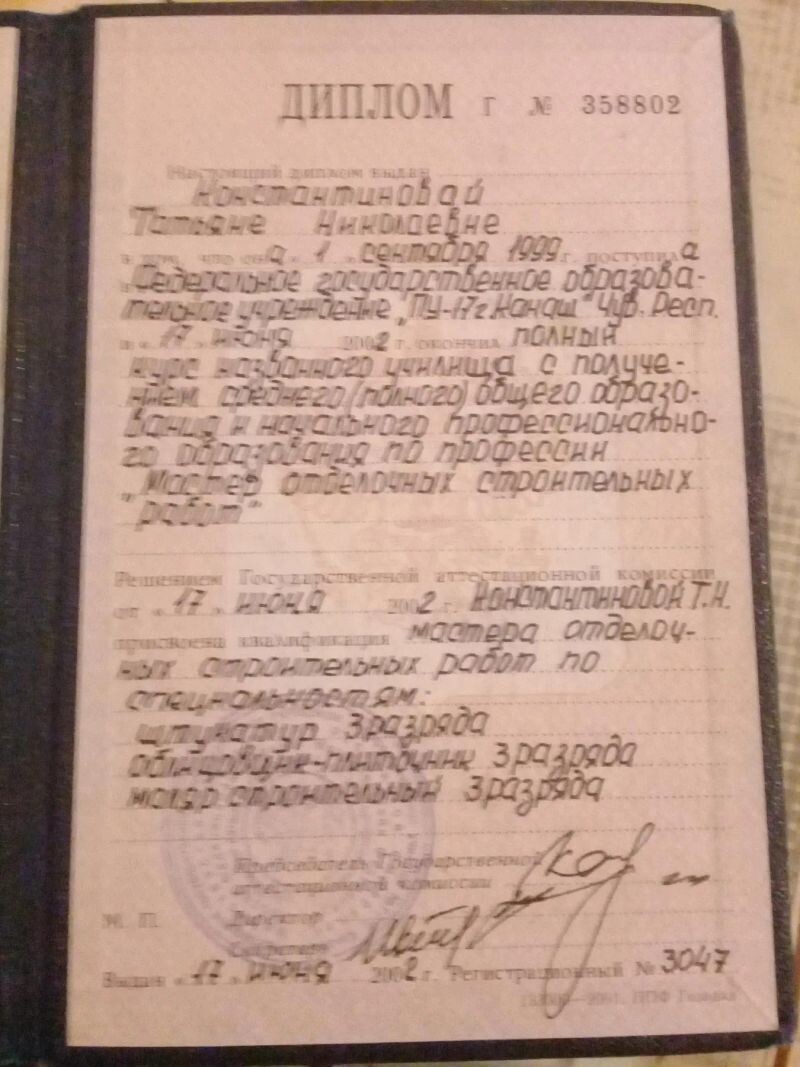 ДИПЛОМ Г № 358802
Настоящий диплом выдан
Константиновай
Татьяне Николаевне
в том, что она « 1 » сентября 1999 г. поступила
в Федеральное государственное образова-
тельное учреждение „ПУ-17 г. Канаш" Чув. Респ.
и « 17 » июня 2002 г. окончил полный
курс названного училища с получе-
нием среднего (полного) общего образо-
вания и начального профессионально-
го образования по профессии
„Мастер отделочных строительных
работ"
Решением Государственной аттестационной комиссии
от « 17 » июня 2002 г. Константиновой Т.Н.
присвоена квалификация мастера отделоч-
ных строительных работ по
специальностям:
штукатур 3 разряда
облицовщик-плиточник 3 разряда
маляр строительный 3 разряда
Председатель Государственной
аттестационной комиссии
М. П. Директор
Секретарь
Выдан « 17 » июня 2002 г. Регистрационный № 3047